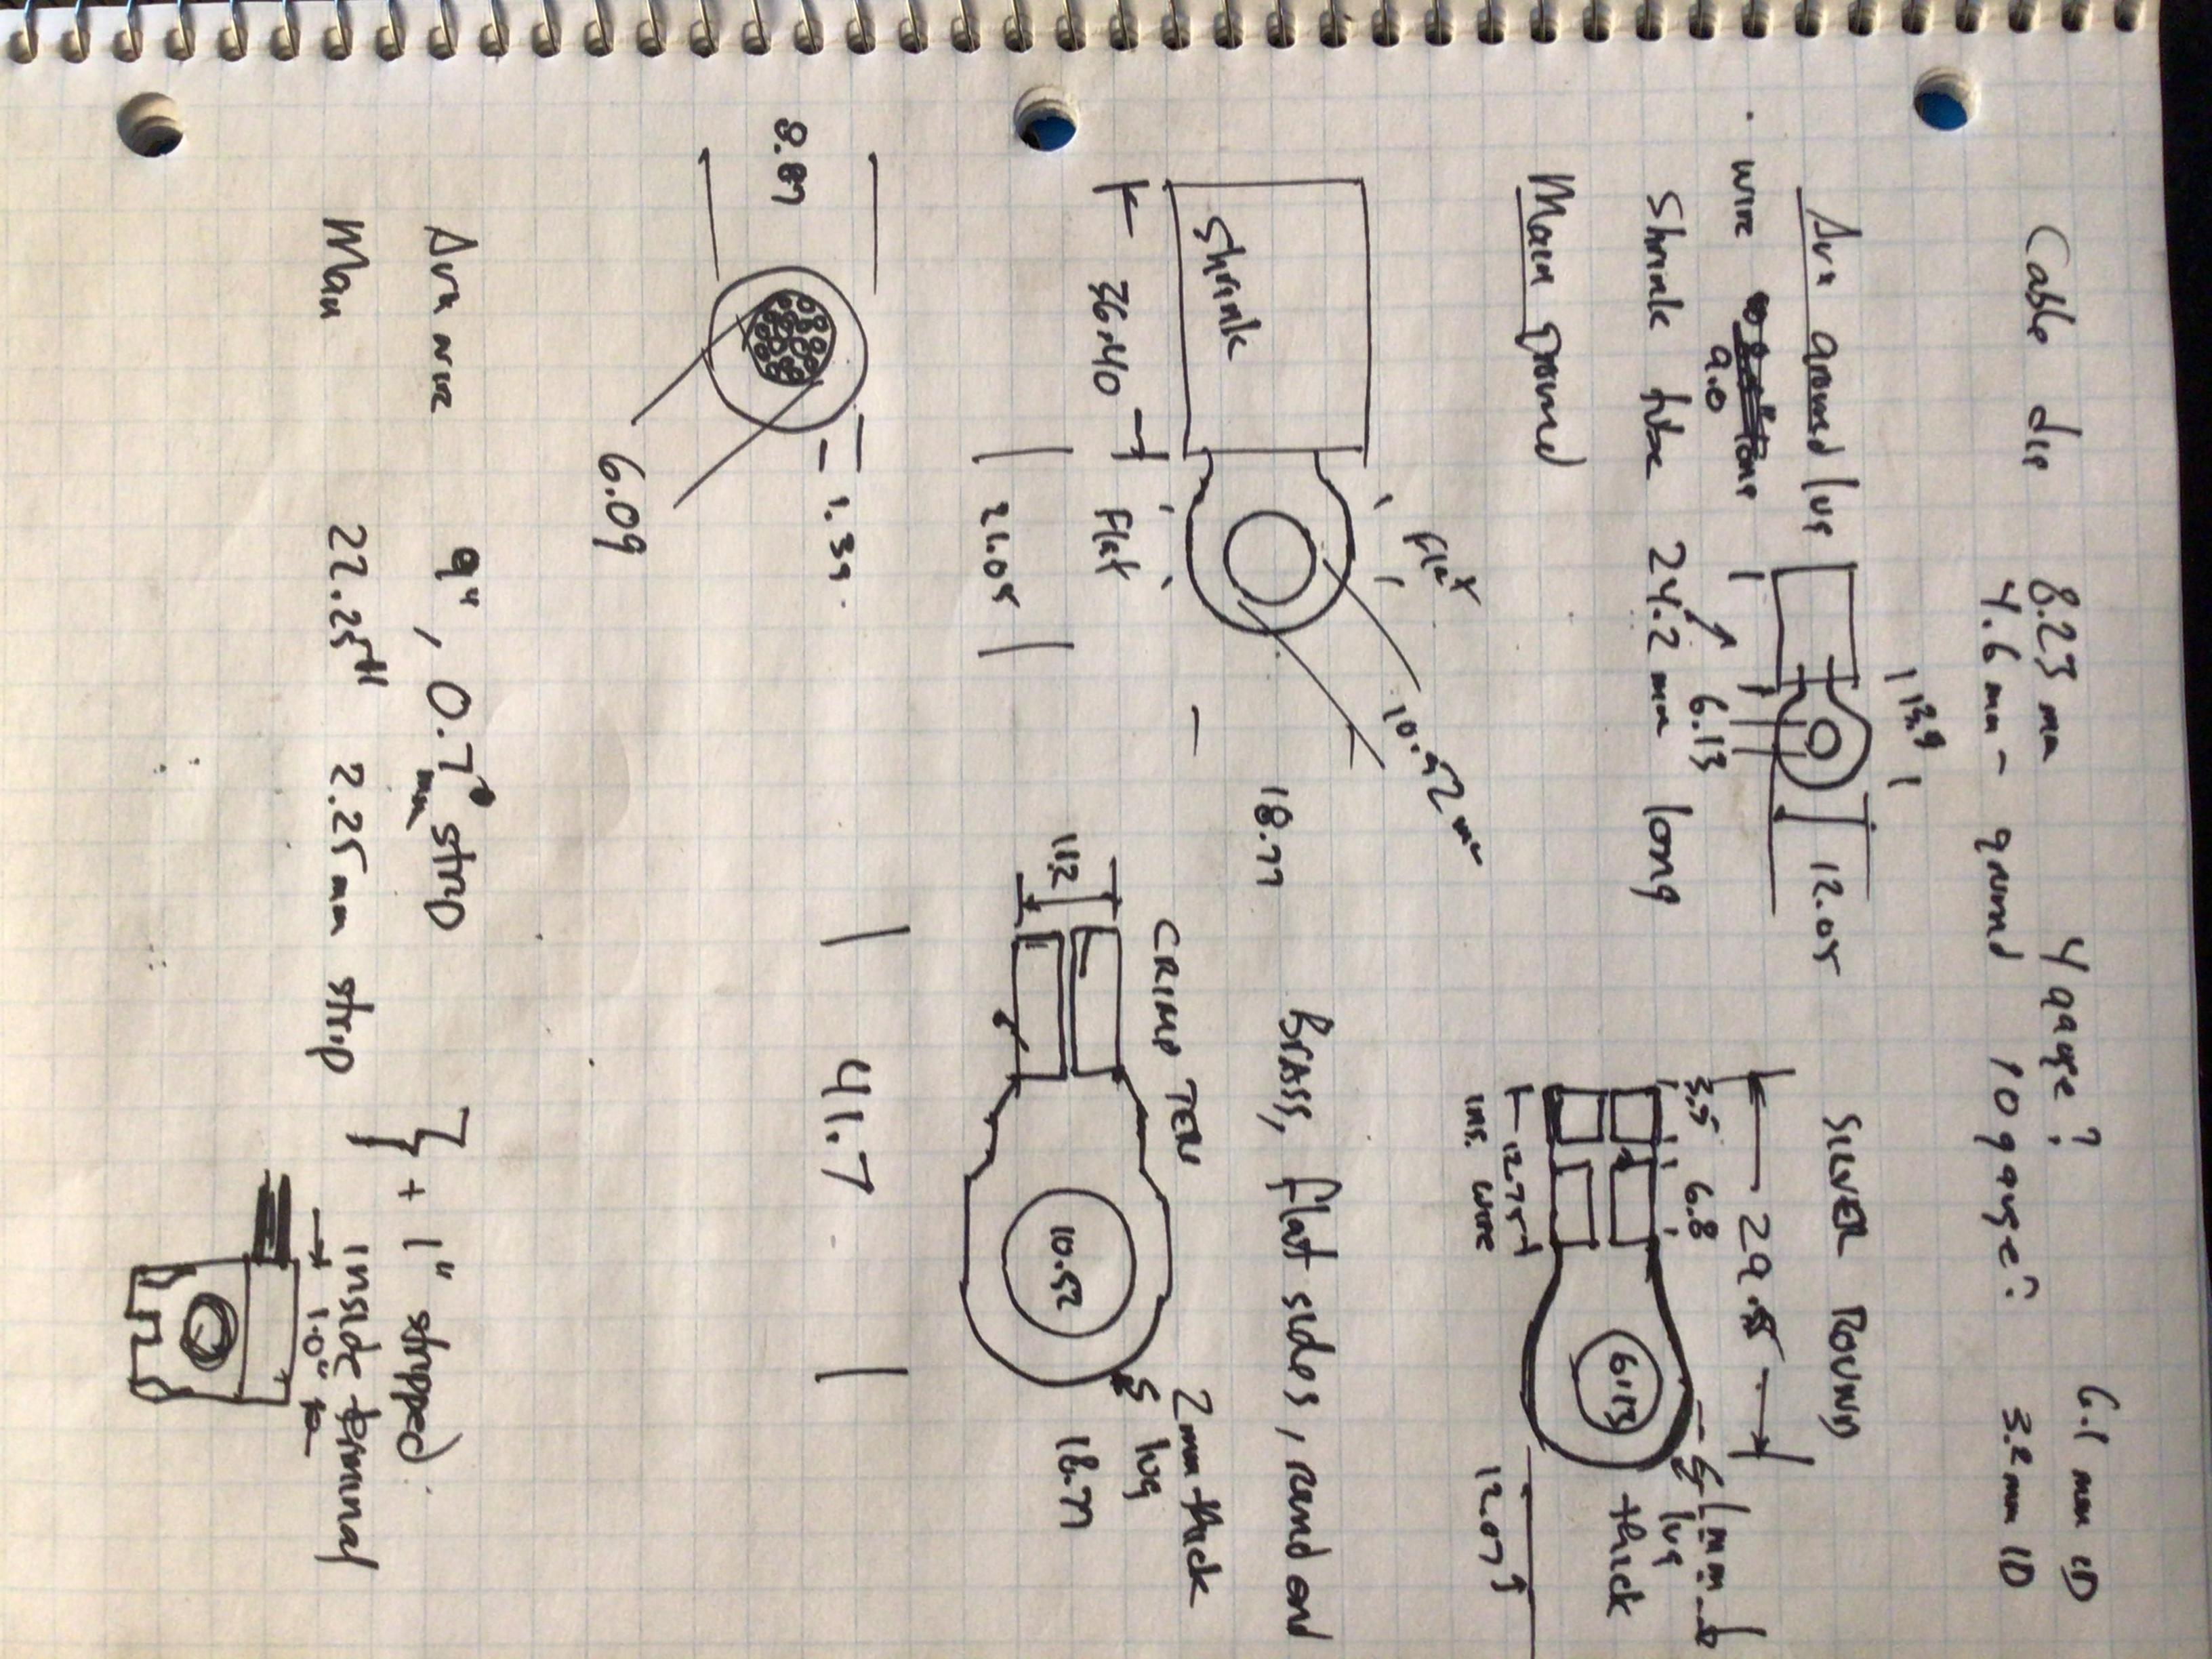 Cable dia 8.23 mm 4 gauge? 6.1 mm ID
4.6 mm - ground 10 gauge? 3.2 mm ID
Aux ground lug
13.9
12.05
6.13
wire
9.0
Shrink tube 24.2 mm long
SILVER ROUND
29.5
3.5
6.8
6.13
12.75
ins. wire
1mm
lug
thick
12.07
Main ground
Flat
10.52 mm
Shrink
36.40
Flat
21.05
18.77
Brass, flat sides, round end
CRIMP TEN
11.2
10.52
2mm thick
lug
18.77
41.7
8.87
1.39
6.09
Aux wire 9", 0.7" strip
mm
Main 22.25" 2.25 mm strip
+ 1" stripped
inside terminal
1.0"